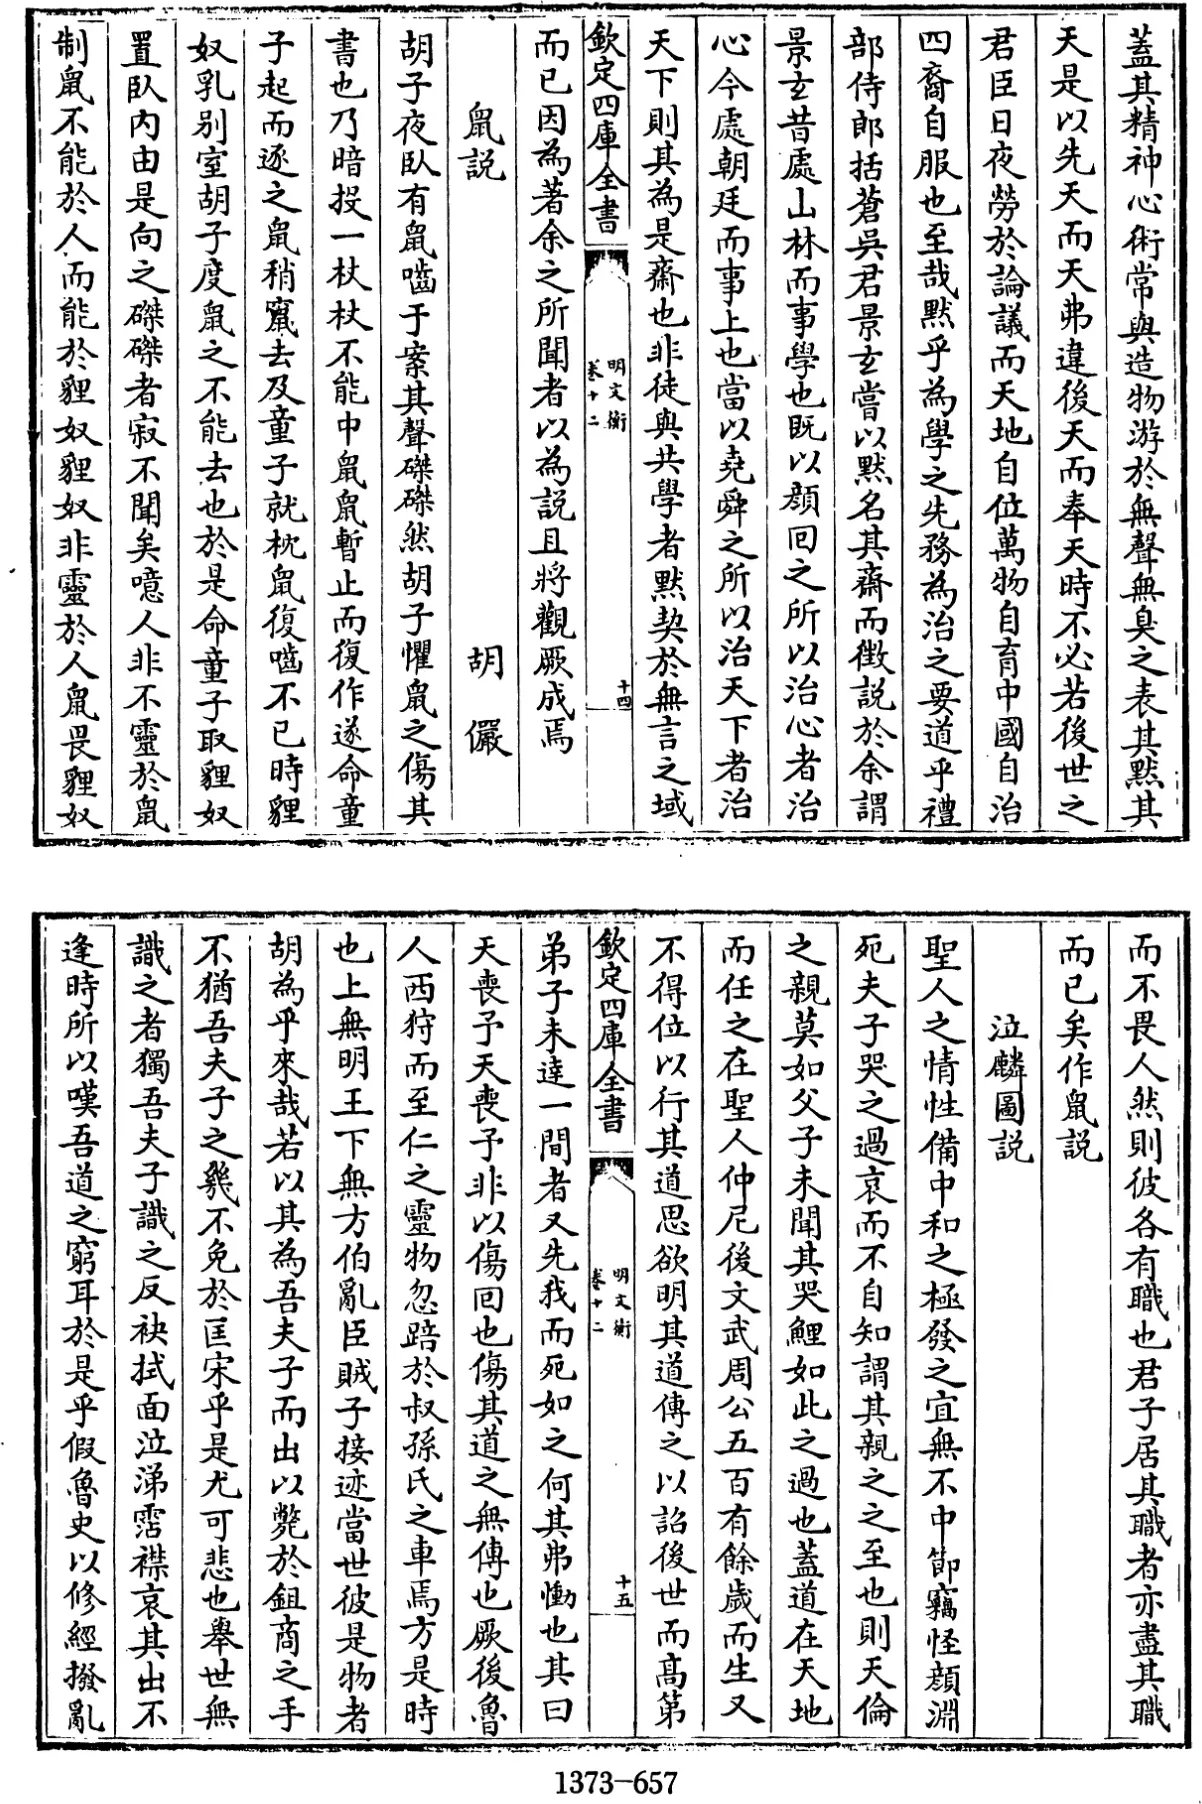 蓋其精神心術常與造物游於無聲無臭之表其黙其
天是以先天而天弗違後天而奉天時不必若後世之
君臣日夜勞於論議而天地自位萬物自育中國自治
四裔自服也至哉黙乎為學之先務為治之要道乎禮
部侍郎括蒼吳君景𤣥嘗以黙名其齋而徴說於余謂
景𤣥昔處山林而事學也既以顔回之所以治心者治
心今處朝廷而事上也當以堯舜之所以治天下者治
天下則其為是齋也非徒與共學者黙契於無言之域
欽定四庫全書
明文衡
卷十二
十四
而已因為著余之所聞者以為說且將觀厥成焉
鼠說
胡儼
胡子夜臥有鼠嚙于案其聲磔磔然胡子懼鼠之傷其
書也乃暗投一杖杖不能中鼠鼠暫止而復作遂命童
子起而逐之鼠稍竄去及童子就枕鼠復嚙不已時貍
奴乳别室胡子度鼠之不能去也於是命童子取貍奴
置臥内由是向之磔磔者寂不聞矣噫人非不靈於鼠
制鼠不能於人而能於貍奴貍奴非靈於人鼠畏貍奴
而不畏人然則彼各有職也君子居其職者亦盡其職
而已矣作鼠說
泣麟圖說
聖人之情性備中和之極發之宜無不中節竊怪顔淵
死夫子哭之過哀而不自知謂其親之之至也則天倫
之親莫如父子未聞其哭鯉如此之過也蓋道在天地
而任之在聖人仲尼後文武周公五百有餘歲而生又
不得位以行其道思欲明其道傳之以詔後世而高第
欽定四庫全書
明文衡
卷十二
十五
弟子未達一間者又先我而死如之何其弗慟也其曰
天喪予天喪予非以傷回也傷其道之無傳也厥後魯
人西狩而至仁之靈物忽踣於叔孫氏之車焉方是時
也上無明王下無方伯亂臣賊子接迹當世彼是物者
胡為乎來哉若以其為吾夫子而出以斃於鉏商之手
不猶吾夫子之幾不免於匡宋乎是尤可悲也舉世無
識之者獨吾夫子識之反袂拭面泣涕霑襟哀其出不
逢時所以嘆吾道之窮耳於是乎假魯史以修經撥亂
1373—657